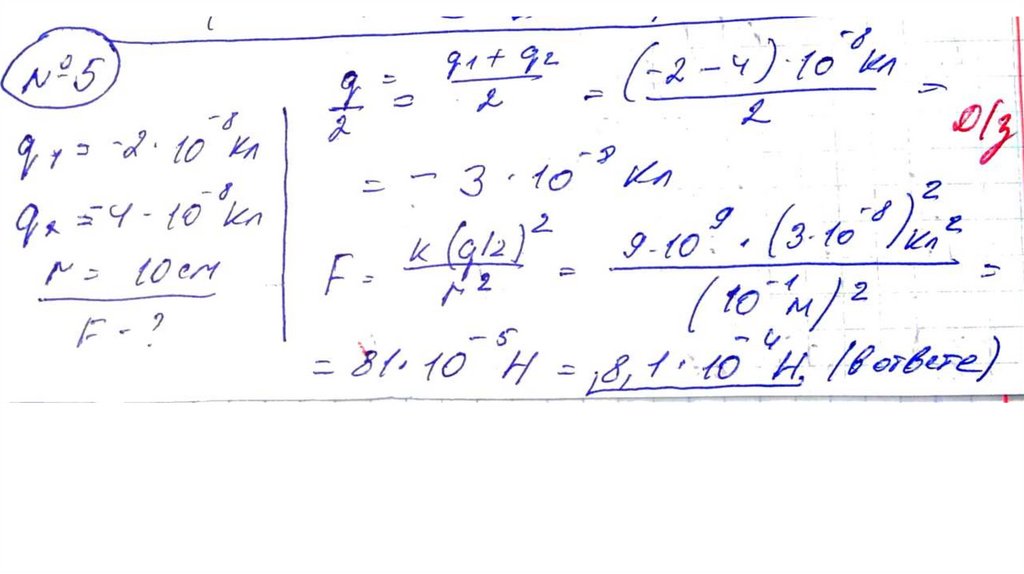 №5
q₁ = -2 · 10⁻⁸ Кл
q₂ = -4 · 10⁻⁸ Кл
r = 10 см
F - ?
q/2 = (q₁ + q₂)/2 = ((-2 - 4) · 10⁻⁸ Кл)/2 =
Д/з
= - 3 · 10⁻⁸ Кл
F = k(q/2)²/r² = (9·10⁹ · (3·10⁻⁸)² Кл²)/(10⁻¹ м)² =
= 81 · 10⁻⁵ Н = 8,1 · 10⁻⁴ Н. (в ответе)